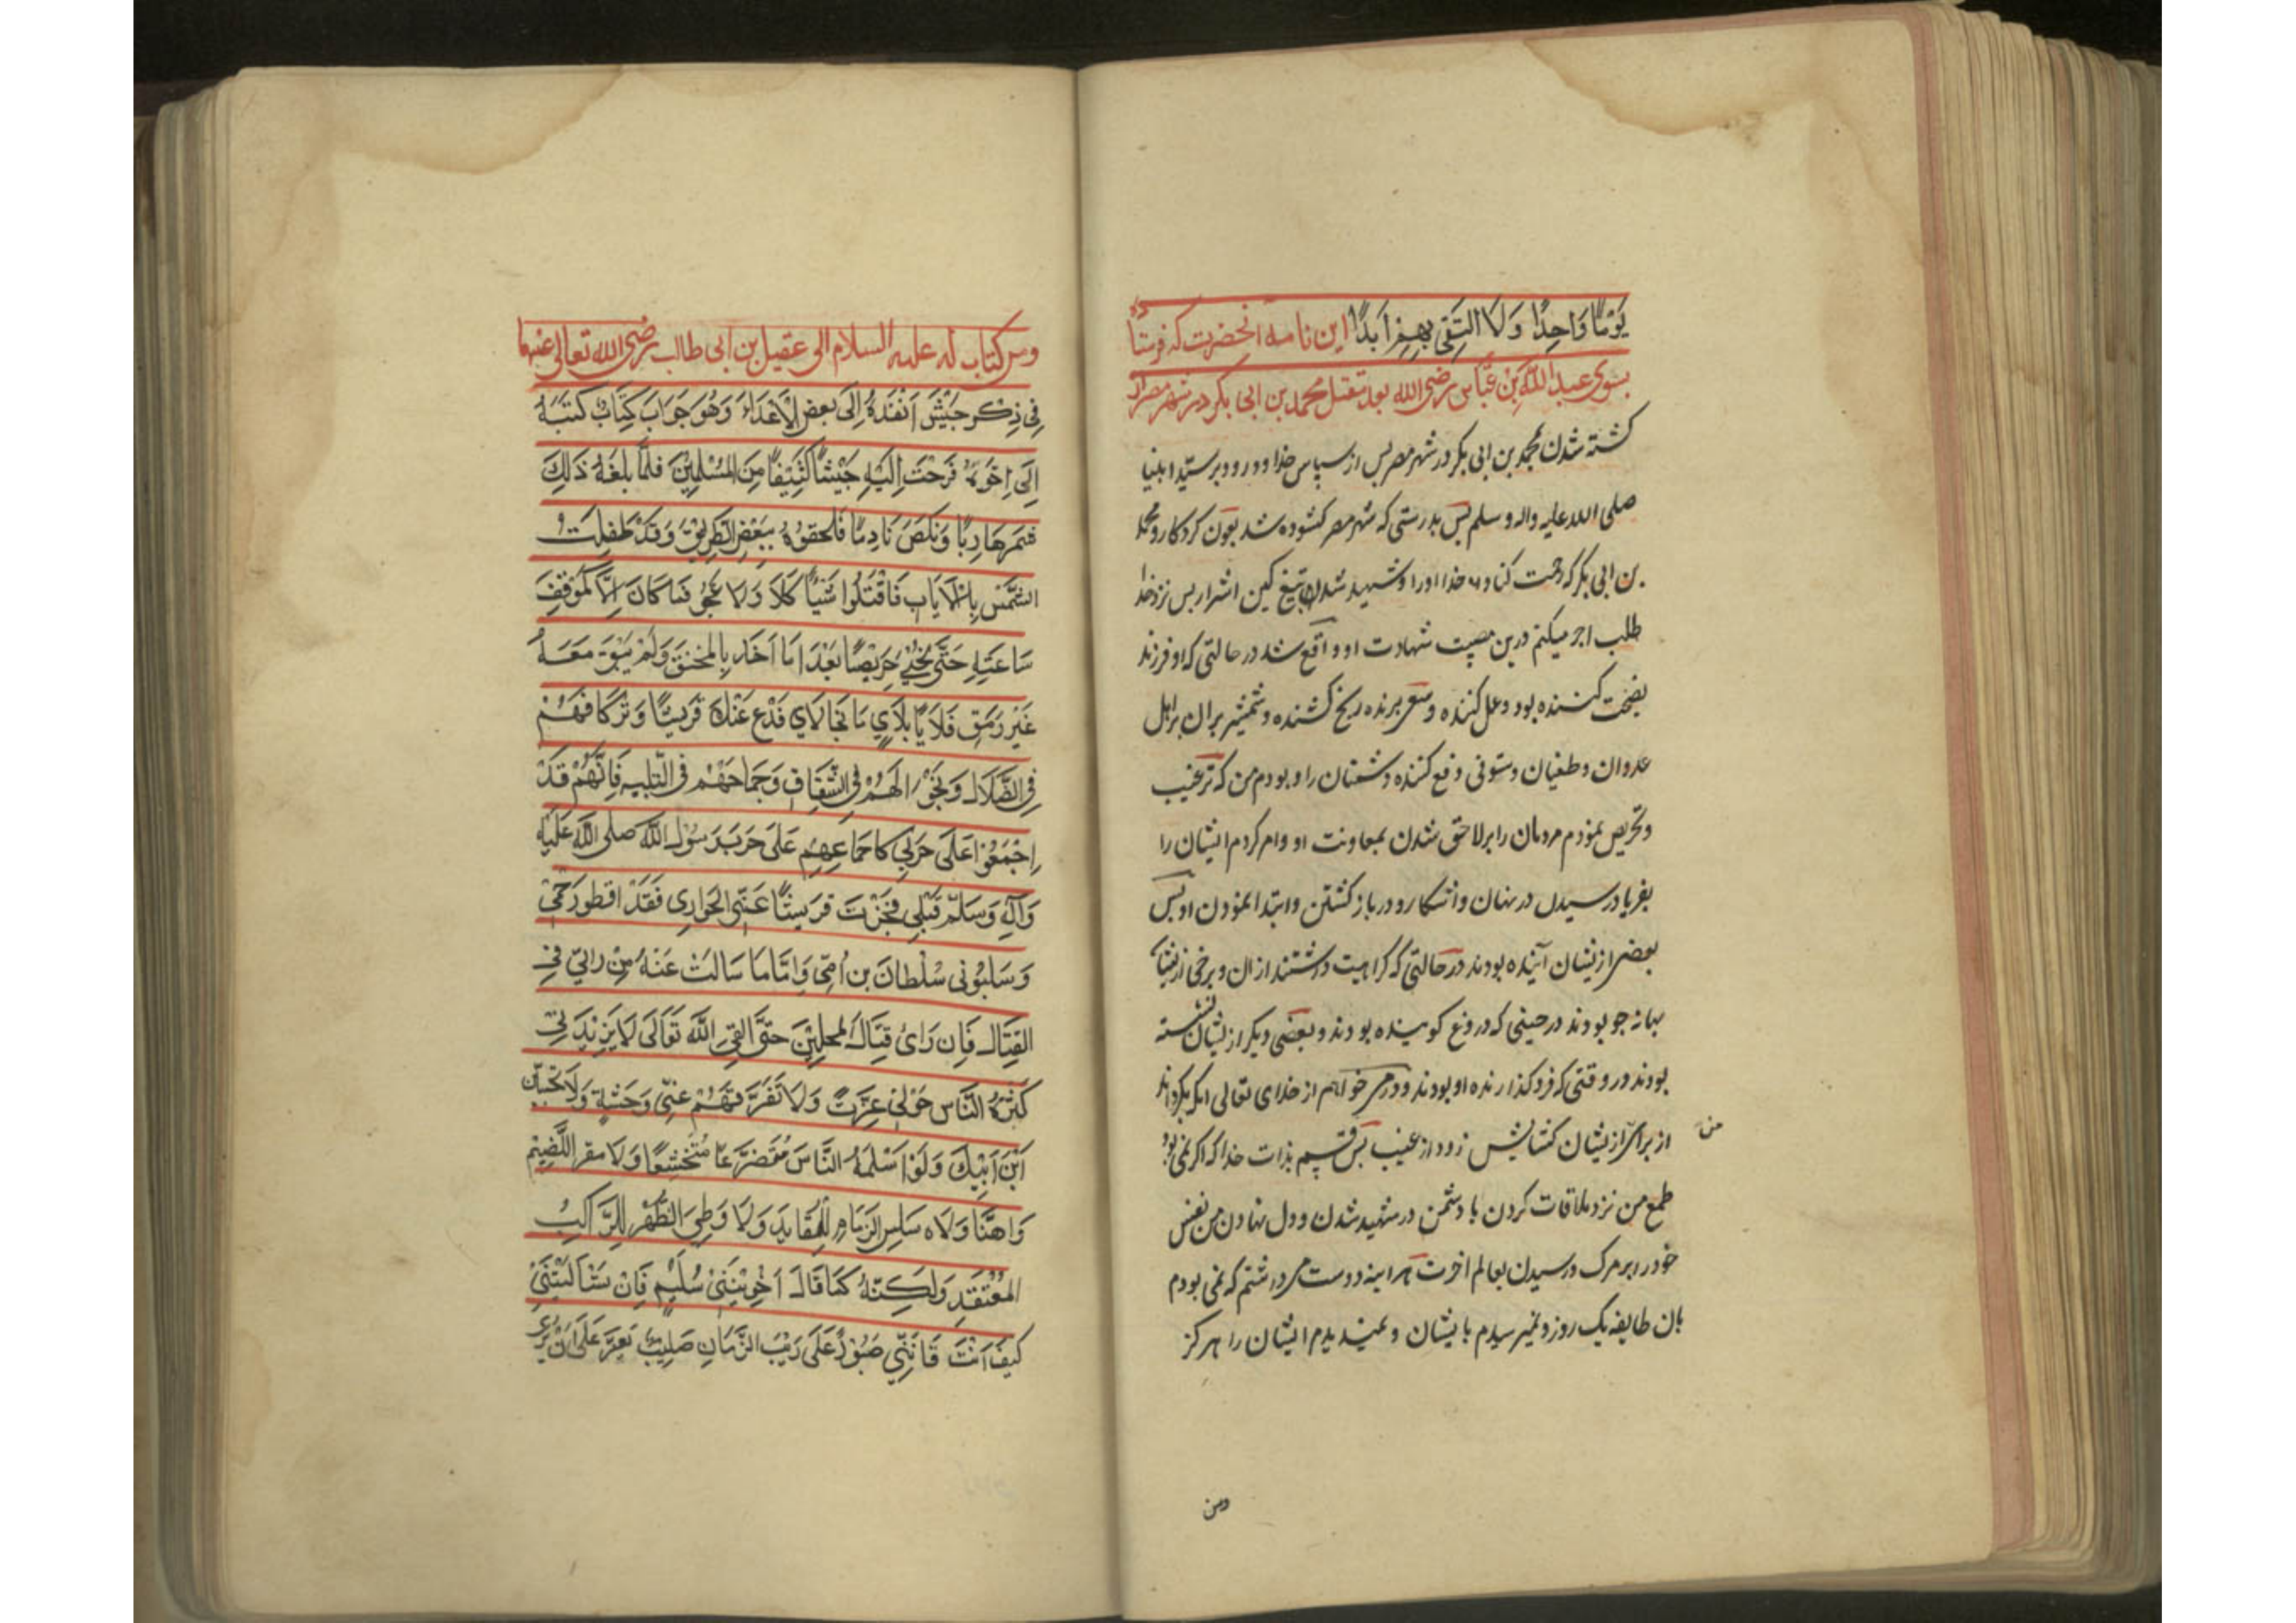 يَوْمًا وَاحِدًا وَلَا الْتَقِيَ بِهِمْ اَبَدًا این نامه آنحضرت که فرستاده
بسوی عبد اللّٰه بن عبّاس رضی الله بعد مقتل محمد بن ابی بکر در شهر مصر از
کشته شدن محمد بن ابی بکر در شهر مصر پس از سپاس خدا و درود بر سیّد انبیا
صلی الله علیه واله وسلم پس بدرستی که شهر مصر کشوده شد بعون کردکار و محمد
بن ابی بکر که رحمت کناد خدا او را و شهید شدن بتیغ کین اشرار پس نزد خدا
طلب اجر میکنم درین مصیبت شهادت او واقع شد در حالتی که او فرزند
نصیحت کننده بود و عمل کننده و سعی برنده رنج کشنده و شمشیر بران بر اهل
عدوان و طغیان و ستونی دفع کننده دشمنان را و بودم من که ترغیب
و تحریص نمودم مردمان را بر لاحق شدن بمعاونت او و امر کردم ایشان را
بفریاد رسیدن در نهان و آشکارا و در بازکشتن و ابتدا نمودن او پس
بعضی از ایشان آینده بودند در حالتی که کراهیت داشتند از ان و برخی از ایشان
بهانه جو بودند در حینی که دروغ کوینده بودند و بعضی دیکر از ایشان نشسته
بودند در وقتی که فرو کذارنده او بودند و در می خواهم از خدای تعالی انکه بکرداند
از برای من از ایشان کشایش زود از غیب پس قسم بذات خدا که اکر نمی بود
طمع من نزد ملاقات کردن با دشمن در شهید شدن و دل نهادن من نفس
خود را بر مرک و رسیدن بعالم اخرت هر اینه دوست می داشتم که نمی بودم
بان طایفه یک روز و نمیرسیدم بایشان و نمیدیدم ایشان را هرکز
ومن
ومن کتاب له علیه السلام الی عقیل بن ابی طالب رضی الله تعالی عنهما
فِي ذِكْرِ جَيْشٍ اَنْفَذَهُ اِلَى بَعْضِ الْاَعْدَاءِ وَهُوَ جَوَابَ كِتَابٌ كَتَبَهُ
اِلَى اِخَوَيْهِ فَرَحْتُ اِلَيْهِ جَيْشًا كَثِيْفًا مِنَ الْمُسْلِمِيْنَ فَلَمَّا بَلَغَهُ ذَالِكَ
شمر هَارِبًا وَنَكَصَ نَادِمًا فَلَحِقُوْهُ بِبَعْضِ الطَّرِيْقِ وَقَدْ طَفلَتْ
الشَّمْسُ بِالْاَيَابِ فَاقْتَتَلُوا شَيْأً كَلَا وَلَا فَمَا كَانَ اِلَّا كَمَوْقِفِ
سَاعَتِهِ حَتَّى نَجِيَ جَرِيْضًا بَعْدَ مَا اَخَذَ بِالْمُخَنَّقِ وَلَمْ يَبْقَ مَعَهُ
غَيْرَ رَمَقٍ فَلَايًا بِلَايٍ مَا نَجَا لَايٍ فَدَعْ عَنْكَ قُرَيْشًا وَتَرْكَاضَهُمْ
فِى الضَّلَالِ وَتَجْوَالَهُمْ فِي الشِّقَاقِ وَجِمَاحَهُمْ فِى التِّيهِ فَاِنَّهُمْ قَدْ
اِجْمَعُوْا عَلَى حَرْبِي كَاجْمَاعِهِمْ عَلَى حَرْبِ رَسُوْلِ اللّٰهِ صَلَّى اللّٰهُ عَلَيْهِ
وَآلِهِ وَسَلَّمَ قَبْلِي فَجَزَتْ قُرَيْشًا عَنِّى الْجَوَازِى فَقَدْ قطعو رَحِمِيْ
وَسَلَبُوْنِى سُلْطَانَ بن اُمِّى وَاَمَّا مَا سَالْتَ عَنْهُ مِنْ رَأيِيْ فِي
الْقِتَالِ فَاِن رَأىِ قِتَالُ الْمُحِلِيْنَ حَتَّى اَلْقَى اللّٰهَ تَعَالَى لَا يَزِيْدُنِي
كَثْرَةُ النَّاسِ حَوْلِيْ عِزَّةً وَلَا تَفَرُّقَهُمْ عَنِّى وَحْشَةٍ وَلَا تَحْسَبَنَّ
ابْنَ اَبِيْكَ وَلَوْ اَسْلَمَهُ النَّاسَ مُتَضَرِّعًا مُتَخَشِّعًا وَلَا مقرا لِلضَّيْمِ
وَاهِنًا وَلَا سَلِسَ الزِّمَامِ لِلْقَايِدِ وَلَا وَطِيَ الظَّهْرِ لِلرَّاكِبِ
الْمُقْتَعِدِ وَلَكِنَّهُ كَمَا قَالَ اَخُوْ بَنِيْ سُلَيْمٍ فَاِنْ تَسْأَلِيْنَنِيْ
كَيْفَ اَنْتَ فَاِنَّنِي صَبُوْرٌ عَلَى رَيْبِ الزَّمَانِ صَلِيْبٌ يَعِزُّ عَلَىَّ اَنْ يُرَى